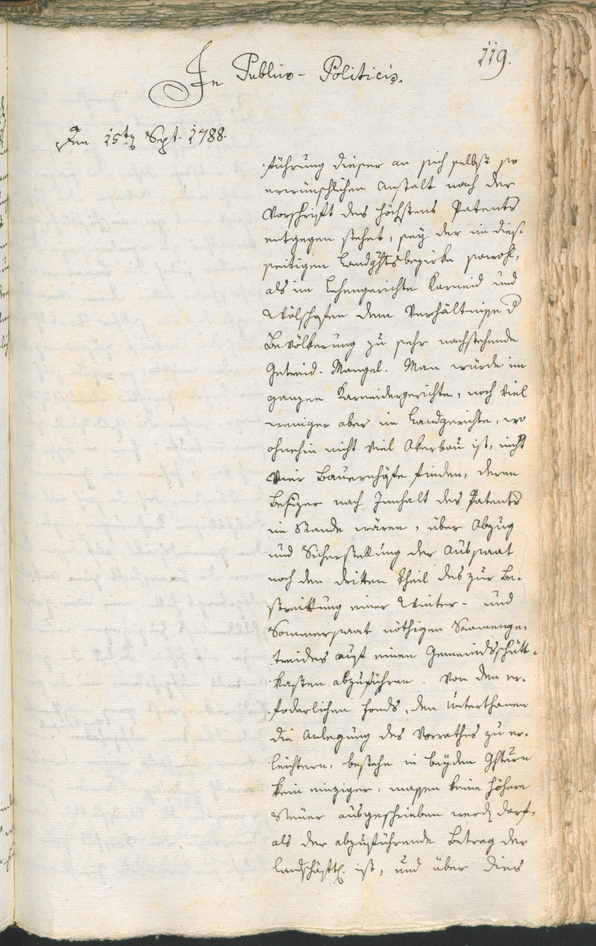 119.
In Publico-Politicis.
Den 15ten Sept. 1788.
führung dieser an sich selbst so
erwünschlichen Anstalt nach der
Vorschrift des höchsten Patents
entgegen stehet, sey der in dies-
seitigem Landghtsbezirke sowol,
als im Lehengerichte Karneid und
Wölschofen dem Verhältnisse d
Bevölkerung zu sehr nachstehende
Getreid-Mangel. Man würde im
ganzen Karneidergerichte, noch viel
weniger aber im Landgerichte, wo
ohnehin nicht viel Akerbau ist, nicht
vier Bauernhöfe finden, deren
Besizer nach Innhalt des Patents
im Stande wären, über Abzug
und Sicherstellung der Aussaat
noch den dritten Theil des zur Be-
streittung einer Winter- und
Sommersaat nöthigen Saamenge-
treides auf einen Gemeindsschütt-
kasten abzuführen. Von den er-
foderlichen Fonds, den Unterthanen
die Anlegung des Vorrathes zu er-
leichtern, bestehe in beyden Ghtern
kein einziger, massen keine höhere
Steuer ausgeschrieben werdn darf,
als der abzuführende Betrag der
landschäftl. ist, und über dies